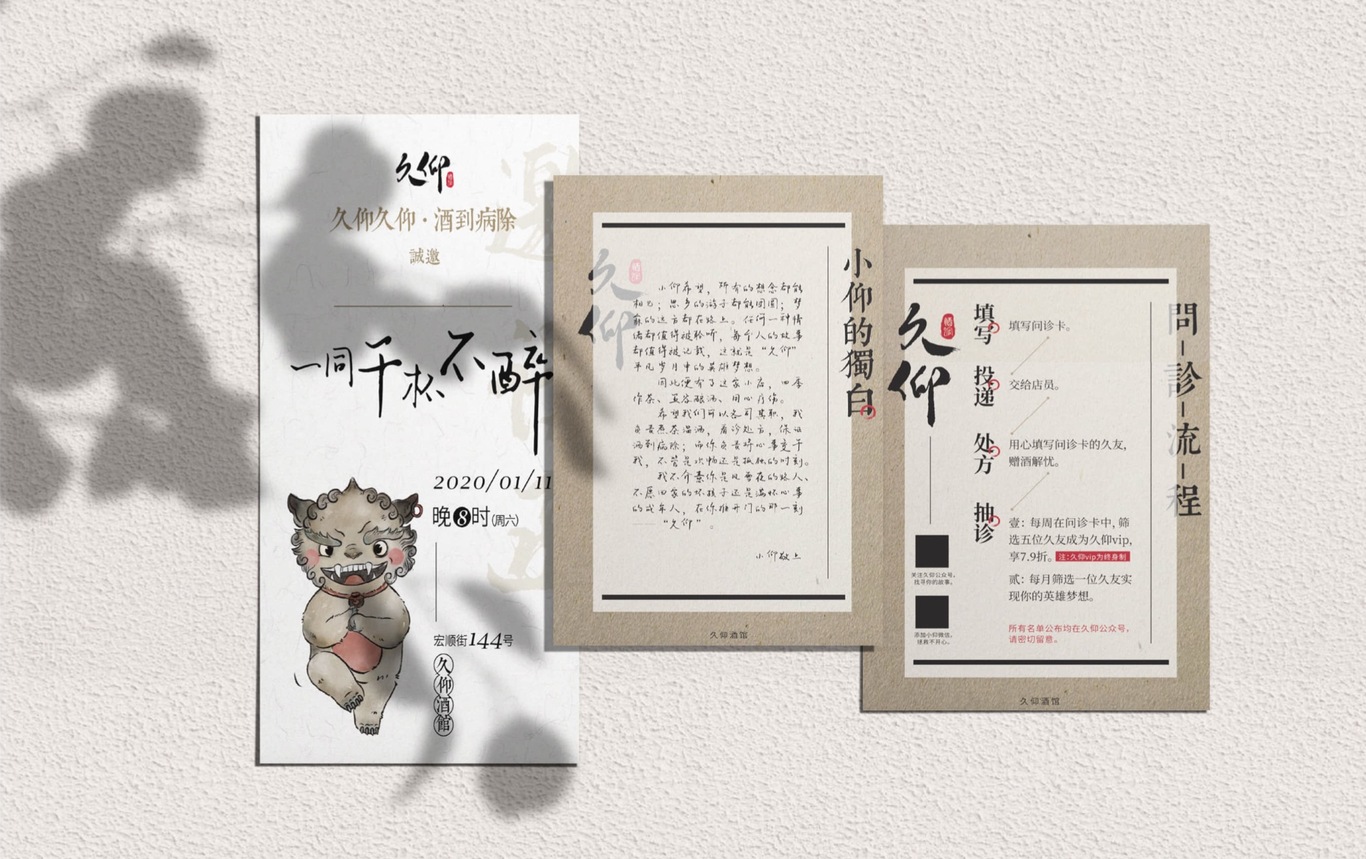 久仰
酒馆
久仰久仰·酒到病除
誠邀
一同干杯不醉
2020/01/11
晚8时(周六)
宏顺街144号
久仰酒館
久仰
小仰的獨白
小仰希望，所有的想念都能
相见；思乡的游子都能团圆；梦
寐的远方都在路上。任何一种情
绪都值得被聆听，每个人的故事
都值得被记载，这就是“久仰”
平凡岁月中的英雄梦想。
因此便有了这家小店，四季
作茶、五谷酿酒、用心疗伤。
希望我们可以各司其职，我
负责煮茶温酒，看诊处方，保证
酒到病除；而你负责将心事交于
我，不管是欢畅还是孤独的时刻。
我不介意你是风雪夜的旅人、
不愿回家的坏孩子还是满怀心事
的成年人，在你推开门的那一刻
——“久仰”。
小仰敬上
久仰酒馆
久仰
問-診-流-程
填写
填写问诊卡。
投递
交给店员。
处方
用心填写问诊卡的久友,
赠酒解忧。
抽诊
壹：每周在问诊卡中, 筛
选五位久友成为久仰vip,
享7.9折。注:久仰vip为终身制
贰：每月筛选一位久友实
现你的英雄梦想。
所有名单公布均在久仰公众号,
请密切留意。
关注久仰公众号,
找寻你的故事。
添加小仰微信,
拯救不开心。
久仰酒馆